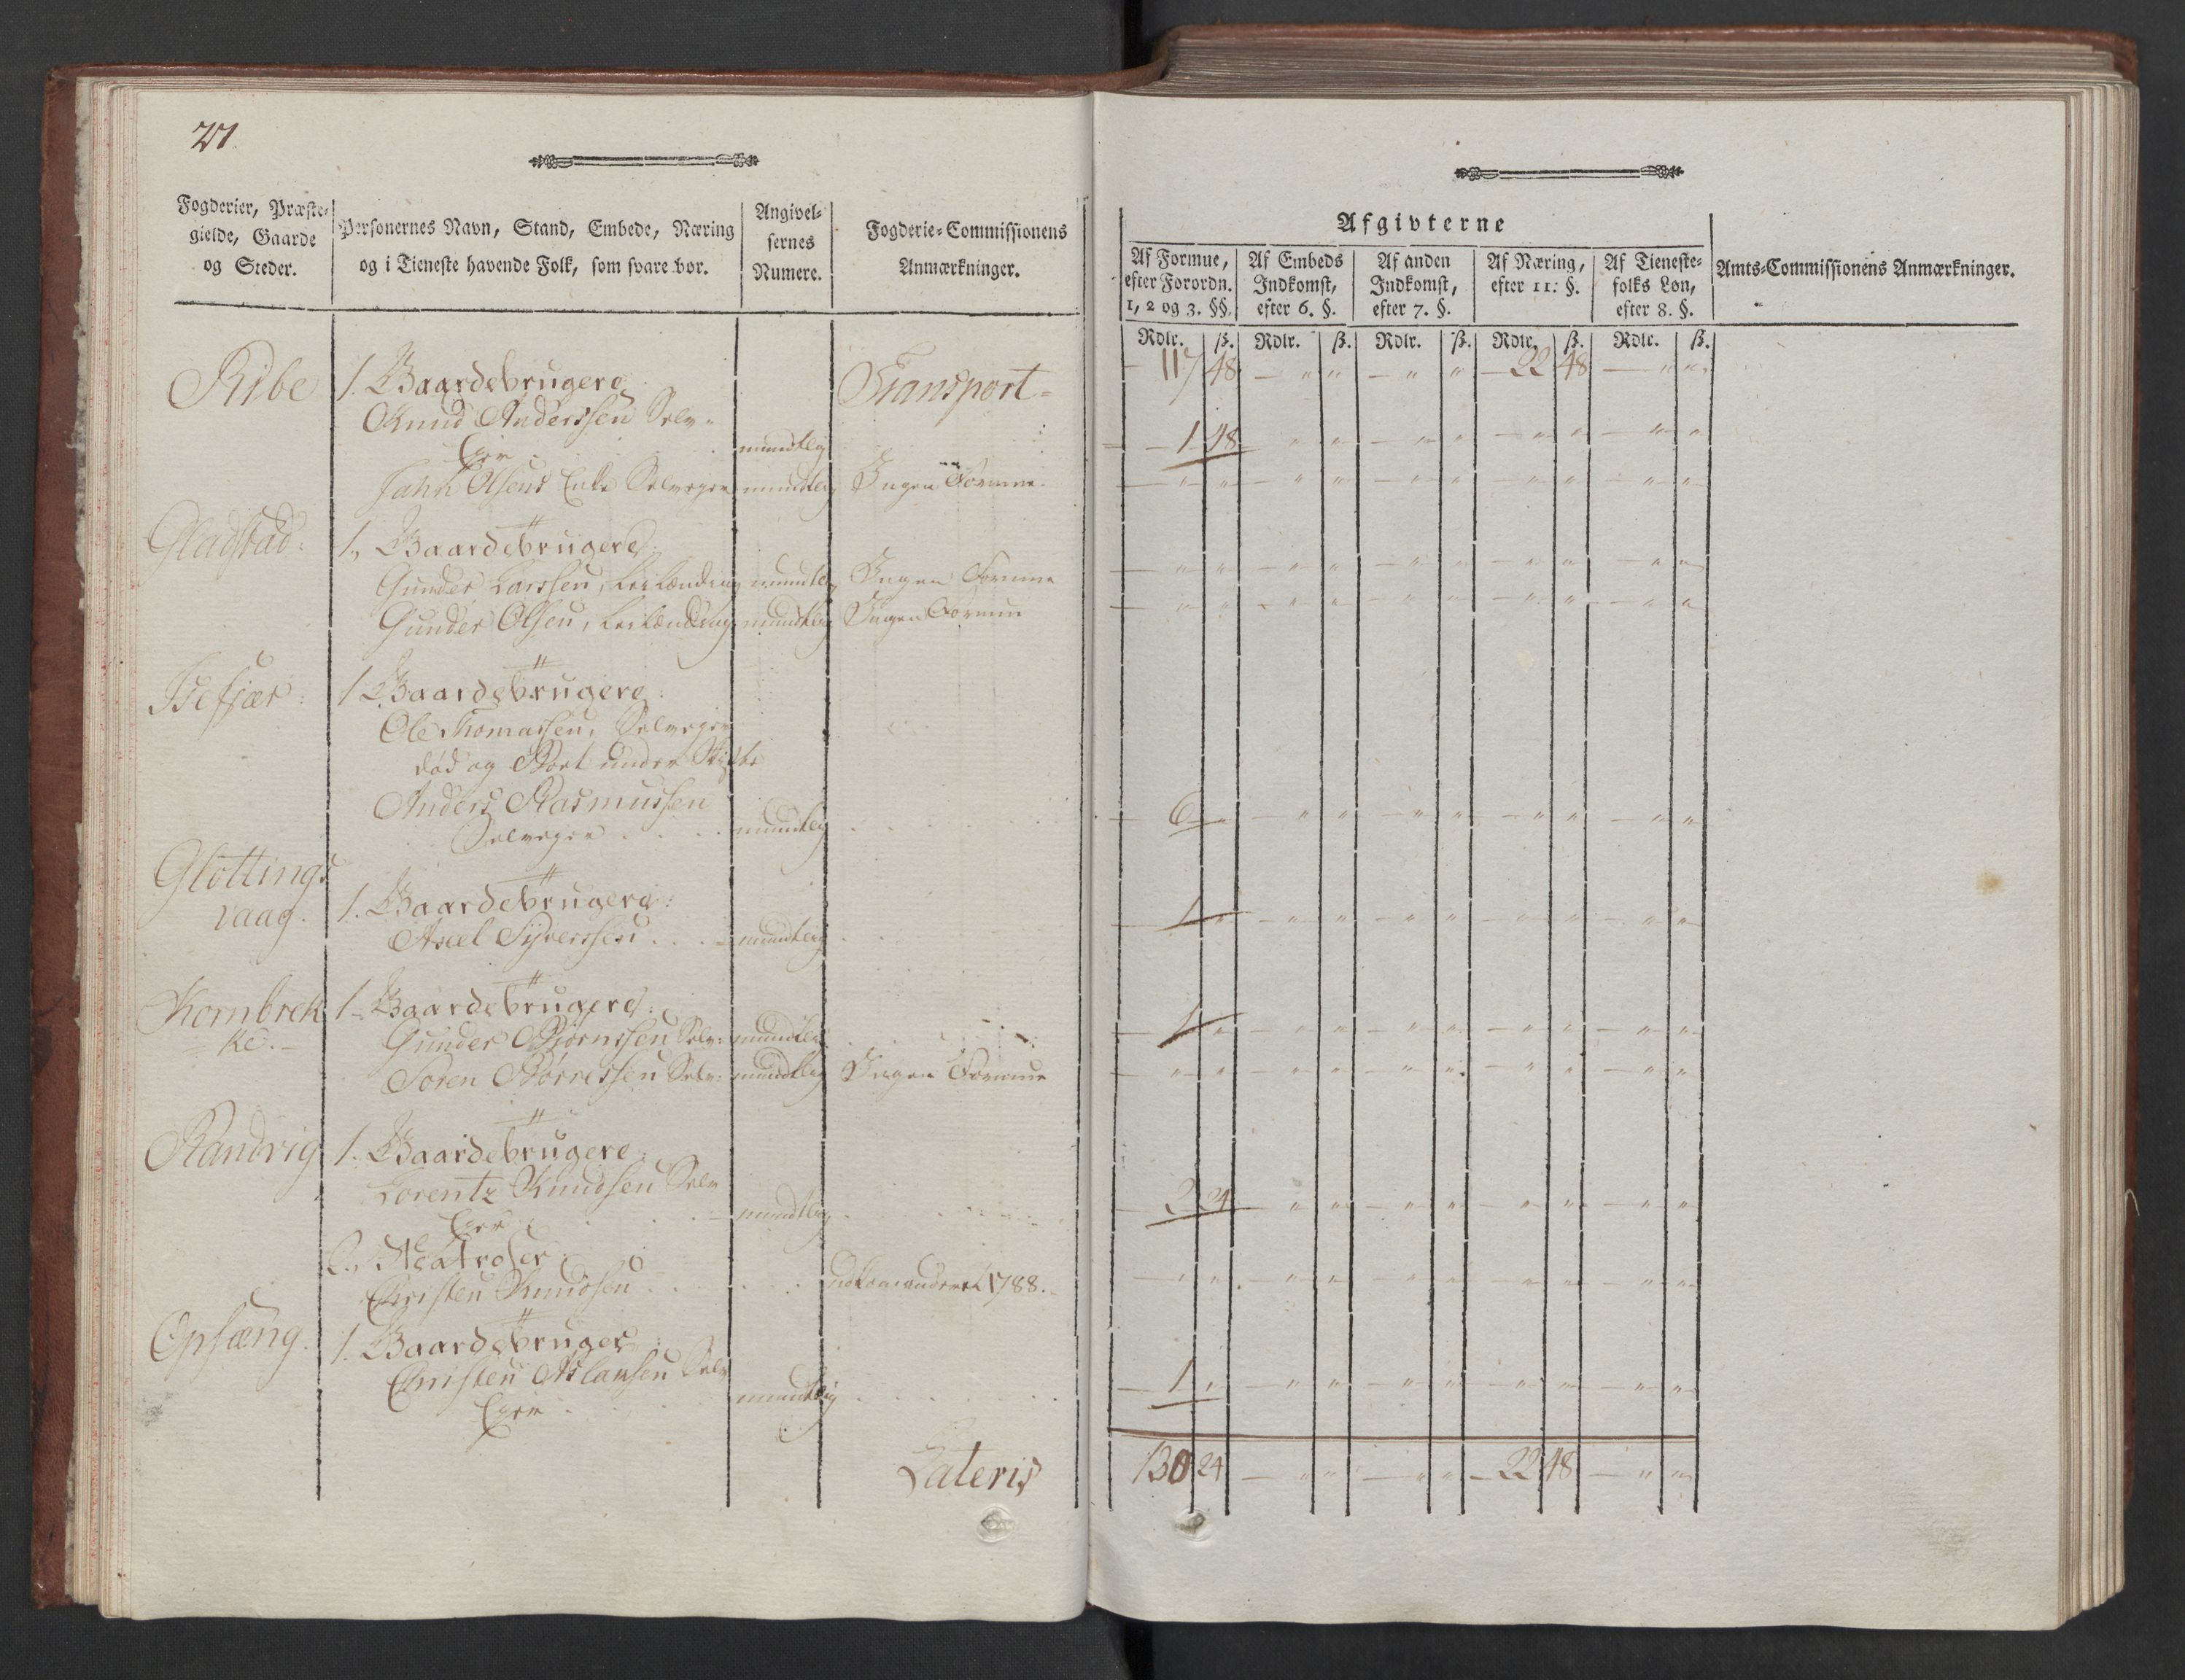 27.
Fogderier, Præste-
gielde, Gaarde
og Steder.
Personernes Navn, Stand, Embede, Næring
og i Tieneste havende Folk, som svare bør.
Angivel-
sernes
Numere.
Fogderie-Commissionens
Anmærkninger.
Ribe
1. Gaardebrugere
Transport
Knud Anderssen Selv-
Eier mundtlig
Jahn Olsens Enke Selveier mundtlig Ingen Formue
Gladstad.
1. Gaardebrugere
Gunder Larssen, Leilænding mundtlig Ingen Formue
Gunder Olsen, Leilænding mundtlig Ingen Formue
1. Gaardebrugere:
Ole Thomassen, Selveier
død og Boet under Skifte
Anders Rasmussen
Selveier mundtlig
Glottings
vaag.
1. Gaardebrugere:
Axel Syverssen mundtlig
Kornbrek
ke.
1. Gaardebrugere:
Gunder Biørnssen Selv: mundtlig
Søren Børressen Selv: mundtlig Ingen Formue
Randvig
1. Gaardebrugere
Lorentz Knudsen Selv
Eier mundtlig
2. Matroser
Christen Knudsen udkomanderet 1788.
Opsæng.
1. Gaardebruger
Christen Aslaksen Selv
Eier mundtlig
Lateris
Afgivterne
Af Formue,
efter Forordn.
1, 2 og 3. §§.
Af Embeds
Indkomst,
efter 6. §.
Af anden
Indkomst,
efter 7. §.
Af Næring,
efter 11: §.
Af Tieneste-
folks Løn,
efter 8. §.
Amts-Commissionens Anmærkninger.
Rdlr. ß. Rdlr. ß. Rdlr. ß. Rdlr. ß. Rdlr. ß.
117 48 — " " — " " — 22 48 — " "
1 48 " " — " " — " " — " "
— " " — " " — " " — " " — " "
— " " — " " — " " — " " — " "
— " " — " " — " " — " " — " "
6 — " " — " " — " " — " "
1 " — " " — " " — " " — " "
1 " — " " — " " — " " — " "
— " " — " " — " " — " " — " "
2 24 — " " — " " — " " — " "
— " " — " " — " " — " " — " "
1 " — " " — " " — " " — " "
130 24 — " " — " " — 22 48 — " "